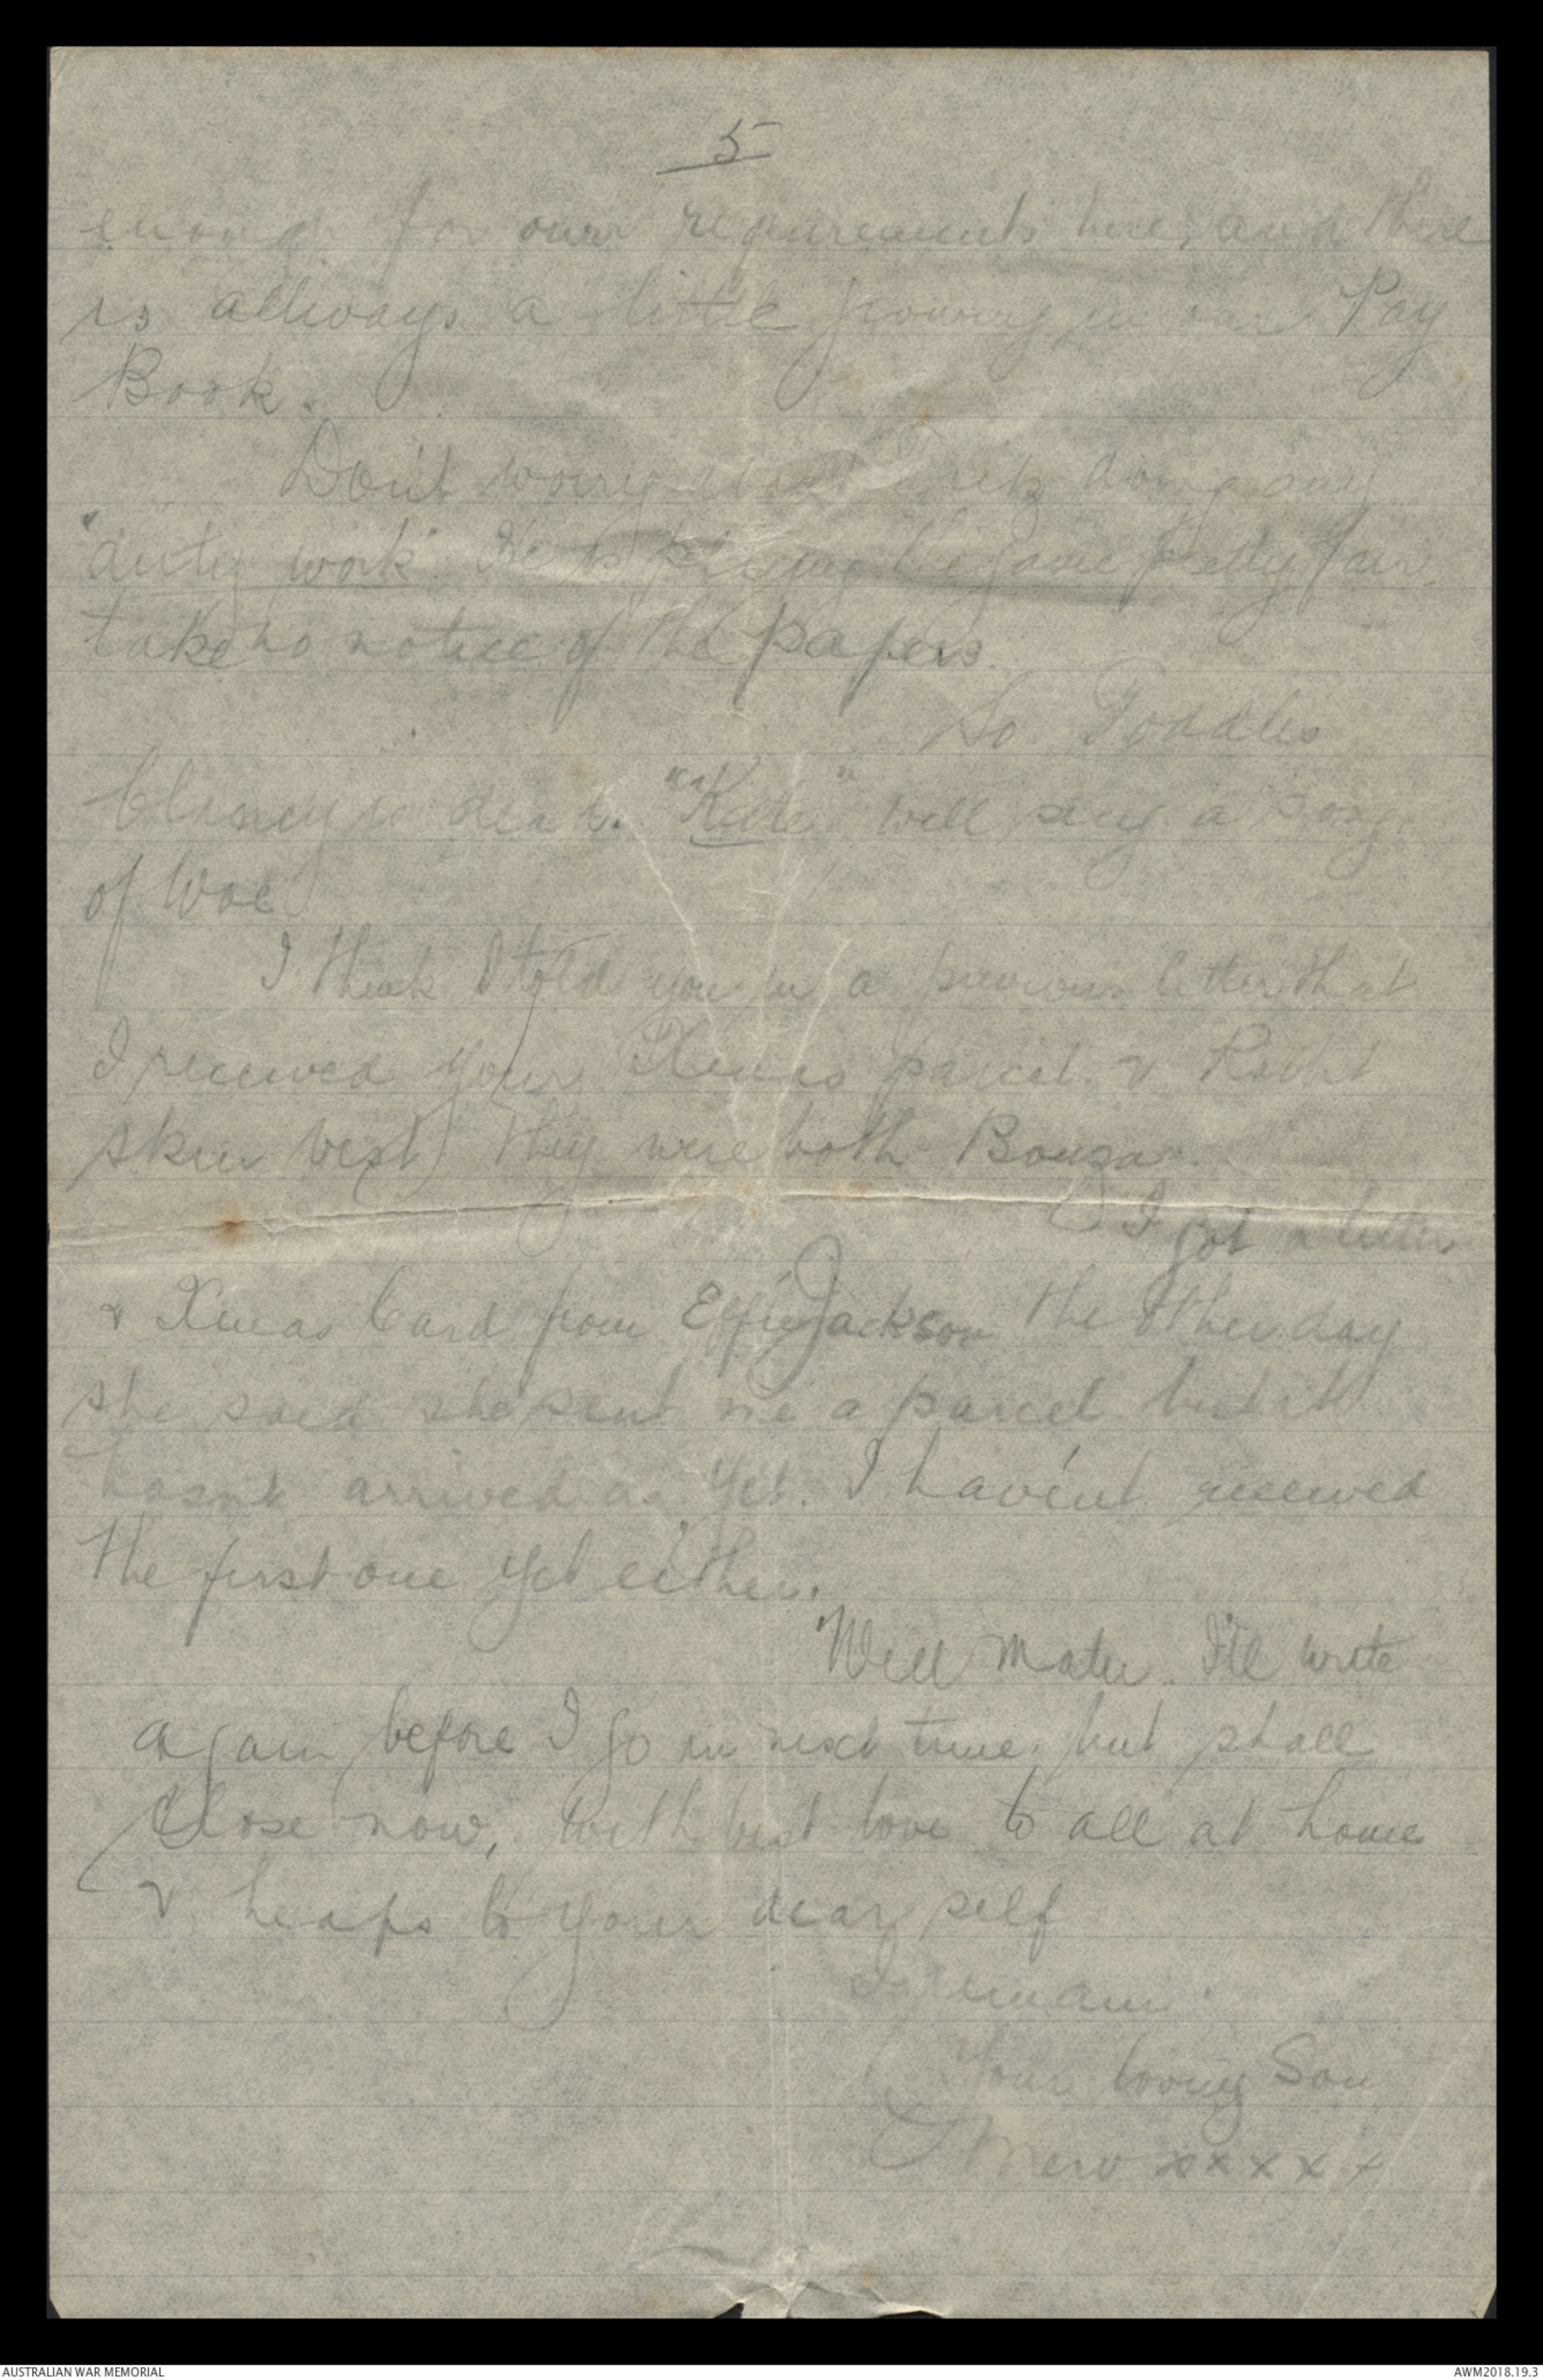 5
enough for our requirements here, and there
is allways a little growing in our Pay
Book.
Don't worry about Fritz doing any
"dirty work" He is playing the game pretty fair,
take no notice of the papers.
So Toddles
Clancy is dead. "Kate" will sing a song
of Woe
I think I told you in a previous letter that
I received your Xmas parcel & Rabbit
skin vest, they were both Bonza.
I got a letter
& Xmas Card from Effie Jackson the other day
she said she sent me a parcel but it
hasn't arrived as yet. I hav'ent received
the first one yet either.
Well Mater I'll write
again before I go in next time, but shall
close now, with best love to all at home
& heaps to your dear self
I remain
Your loving Son
Merv xxxxx
AUSTRALIAN WAR MEMORIAL
AWM2018.19.3